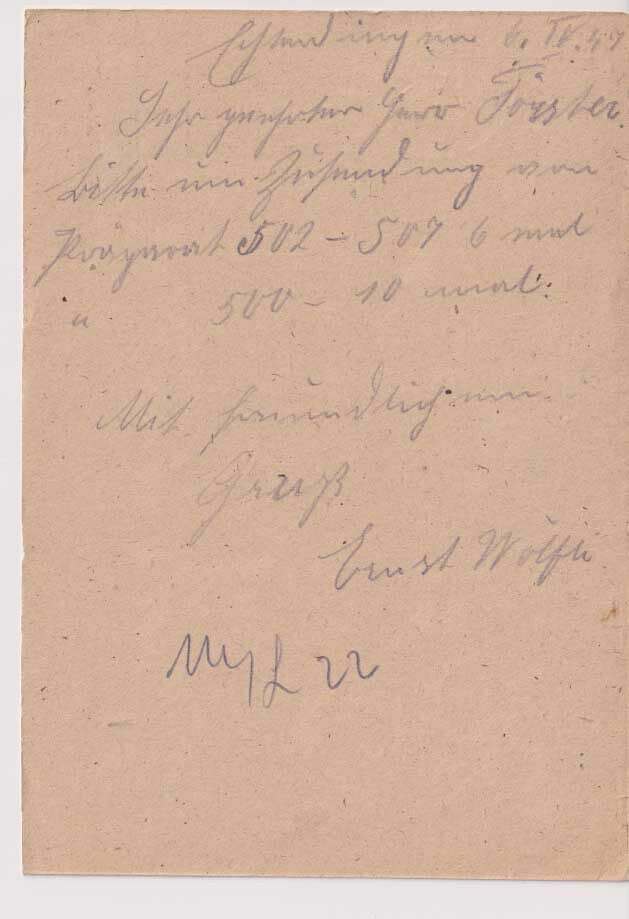 Echterdingen 6. IV. 47
Sehr geehrter Herr Förster.
Bitte um Zusendung von
Präparat 502 – 507 6 mal
" 500 – 10 mal.
Mit freundlichem
Gruß
Ernst Wölfle